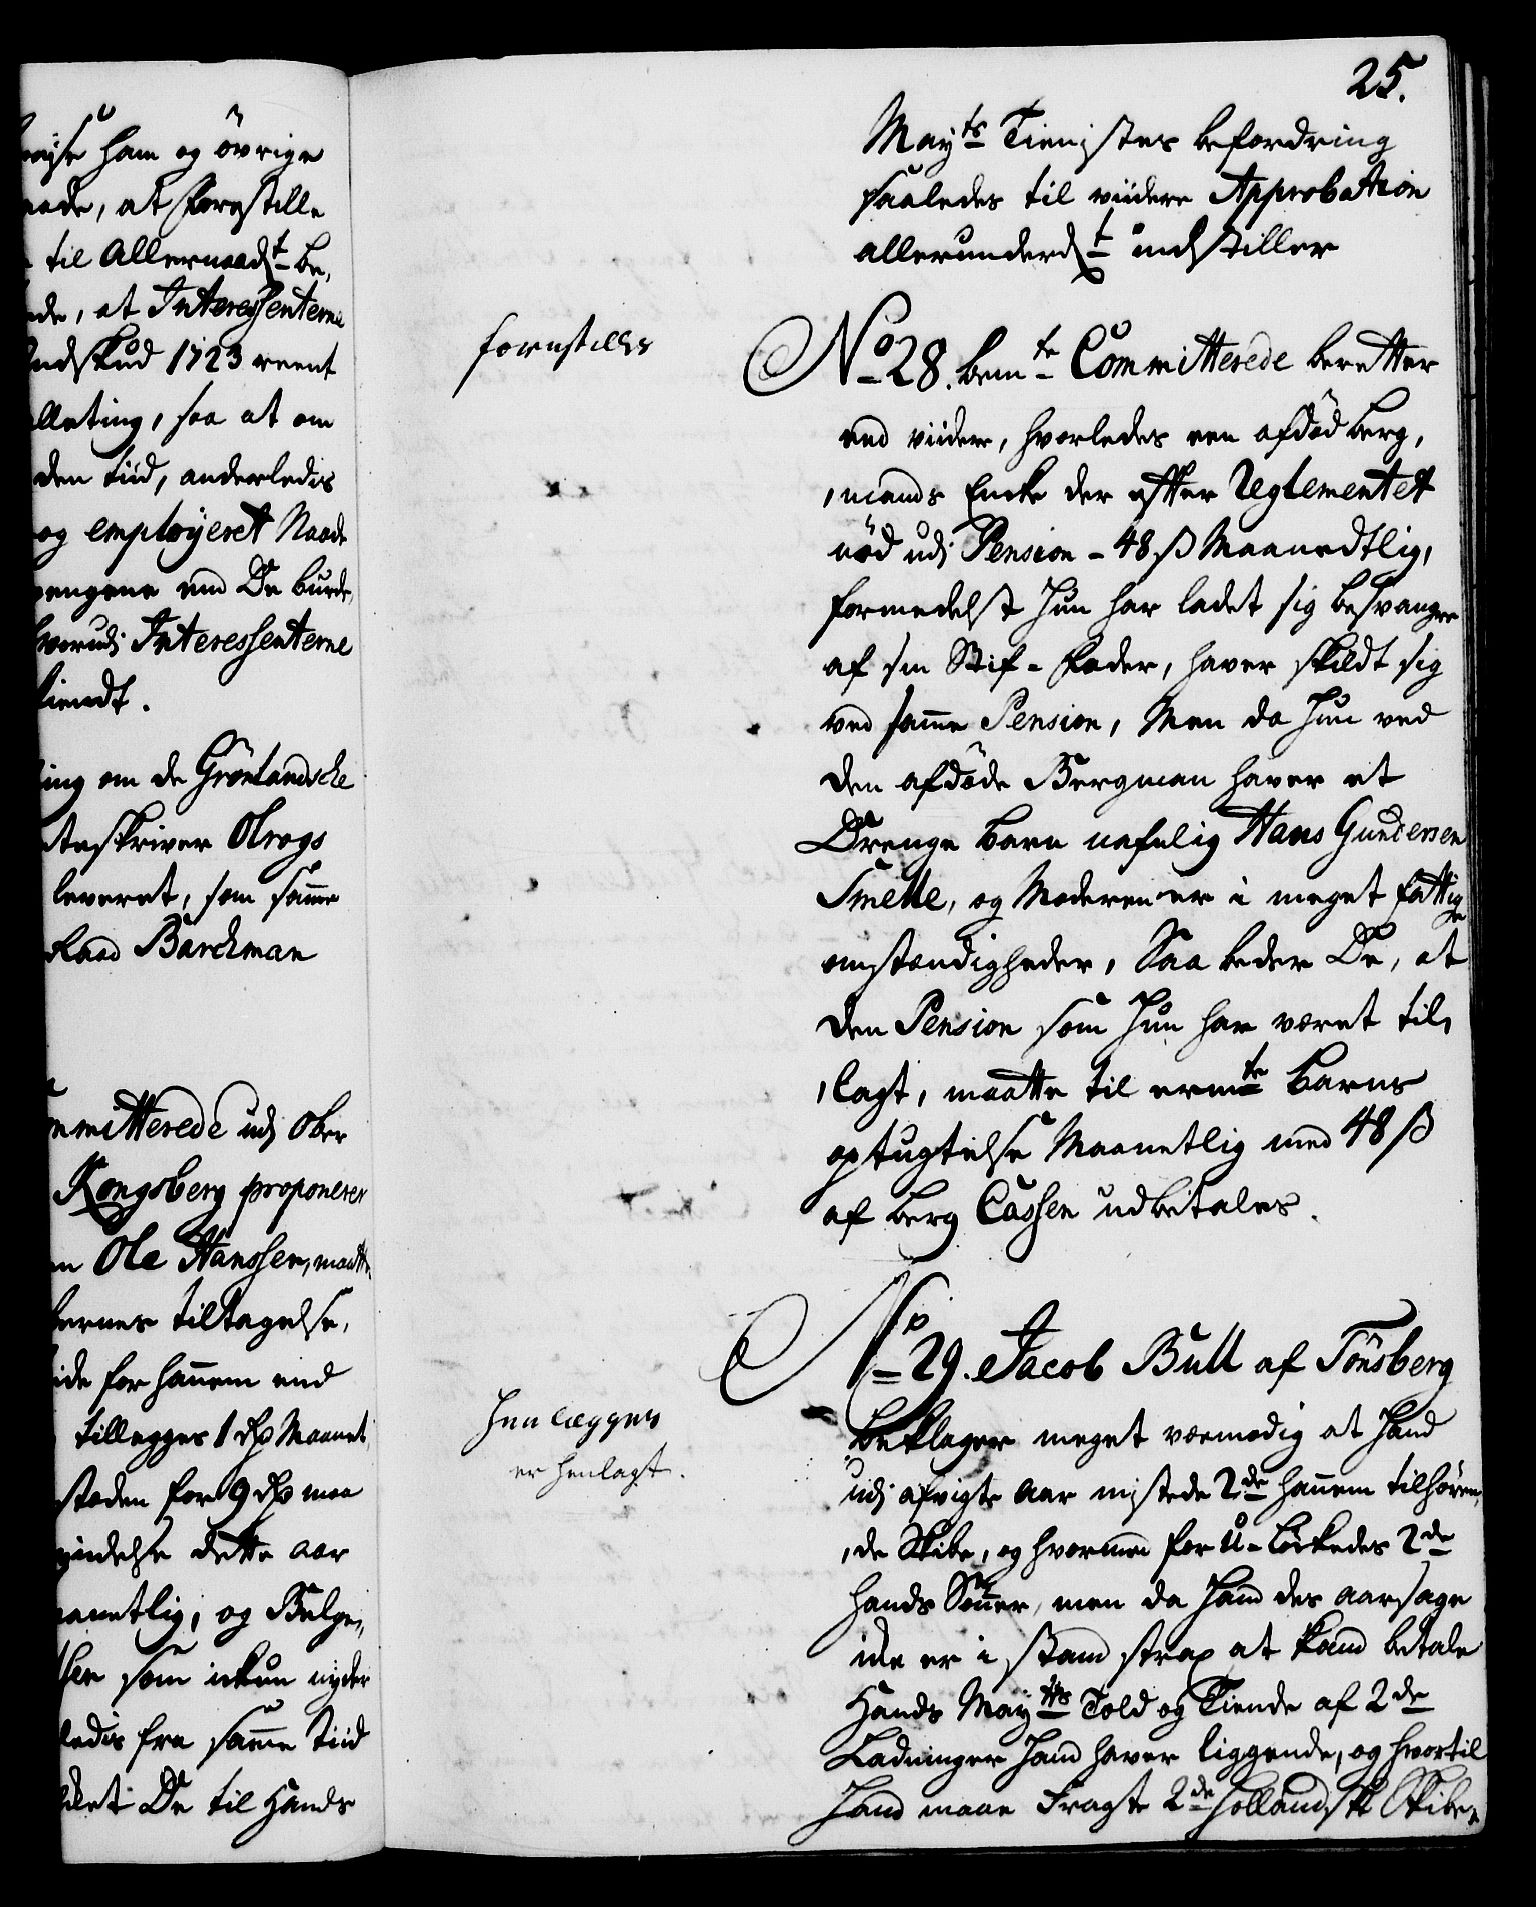 øyse ham og øvrige
aade, at forestille
til Allernaadst be,
de, at Interessenterne
indskud 1723 reent
alleting, saa at om
den tiid, anderledis
og employeret Naade
pengene end De burde,
hvorudi Interessenterne
kiendt.
ing om de Grønlandsche
teskriver Olrogs
leveret, som samme
Raad Barckman
mmitterede udj Ober
Kongsberg proponerer
n Ole Hanssen, maatte
ernes tiltagelse,
ide for hannem end
tillegges 1 rdr Maanet
stæden for 9 rdr maa
yndelse dette aar
aanetlig, og Belge,,
ser som ickun nyder
ledis fra samme tiid
det De til Hands
25.
Mayts Tienistes befordring
saaledes til viidere Approbation
allerunderdt indstiller
forestilles
No 28. bemte Committerede beretter
end viider, hvorledes een afdød berg,
,mands Encke der efter Reglementet
nød udj Pension - 48 ß Maanedtlig,
formedelst Hun har ladet sig besvangre
af sin Stif-fader, haver skildt sig
ved samme Pension, Men da Hun ved
den afdøde Bergman haver et
Drenge barn nafnlig Hans Gundersen
Smelle, og Moderen er i meget fattige
omstændigheder, Saa beder De, at
den Pension som Hun har været til,
,lagt, maatte til ermte Barns
optugtelse Maanetlig med 48 ß
af berg Cassen udbetales.
No 29. Jacob Bull af Tønsberg
Henlægges
er henlagt.
beklager meget veemodig at Hand
udj afvigte aar mistede 2de hannem tilhøren,
,de Skibe, og hvormed for U-løckedes 2de
hands Sønner, men da Hand des aarsage
icke er i stand strax at kand betale
Hands Mayts Told og Tiende af 2de
Ladninger Hand haver liggende, og hvortil
Hand maae Fragte 2de Hollandske Skibe,